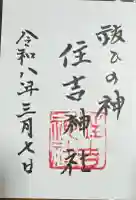 祓ひの神
住吉神社
令和八年三月七日